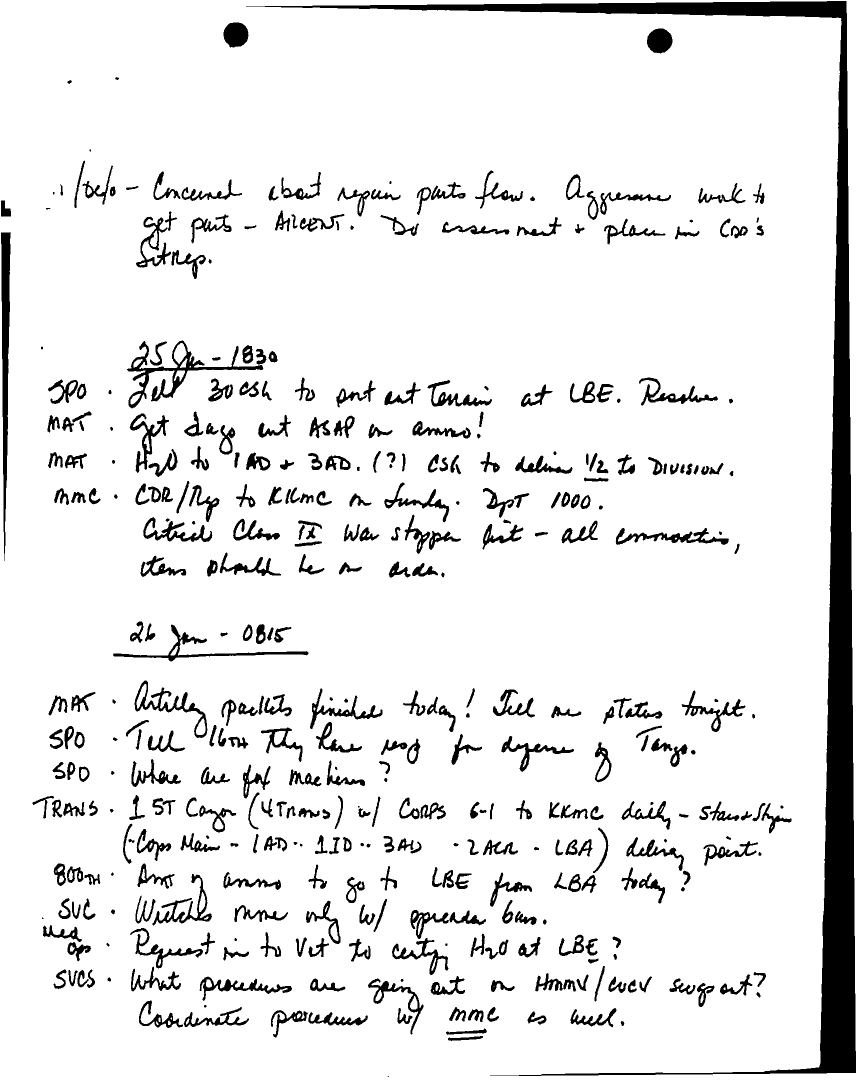 - Concerned about repair parts flow. Aggressive work to
get parts - ARCENT. Do assessment + place in CDR's
Sitrep.
25 Jan - 1830
SPO · Tell 30 CSG to sort out Terrain at LBE. Resolve.
MAT · Get dags out ASAP on ammo!
MAT · H2O to 1AD + 3AD. (?) CSG to deliver 1/2 to DIVISION.
MMC · CDR/Rep to KKMC on Sunday. DPT 1000.
Critical Class IX War stopper list - all commodities,
items should be on order.
26 Jan - 0815
MAT · Artillery packets finished today! Tell me status tonight.
SPO · Tell 16TH They have resp for defense of Tango.
SPO · Where are fax machines?
TRANS · 1 5T Cargo (4TRANS) w/ CORPS 6-1 to KKMC daily - Stars + Stripes
(-Corps Main - 1AD - 1ID - 3AD - 2ACR - LBA) delivery point.
800TH · Amt of ammo to go to LBE from LBA today?
SVC · move only w/ spreader bars.
Med Ops · Request in to Vet to certify H2O at LBE?
SVCS · What procedures are going out on HMMV/CUCV swap out?
Coordinate procedures w/ MMC as well.